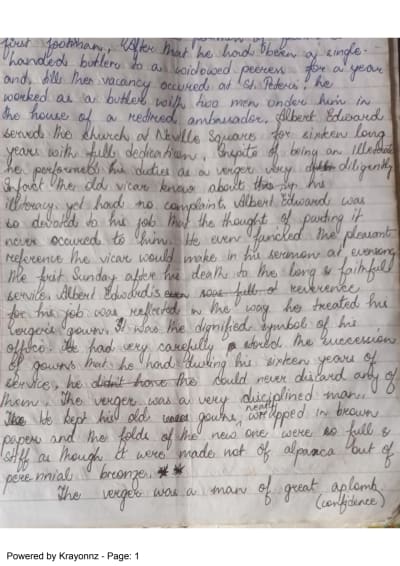 first footman, After that he had been a single-
handed butler to a widowed peeress for a year
and, till the vacancy occured at St. Peter's, he
worked as a butler with two men under him in
the house of a retired ambassador. Albert Edward
served the church at Neville Square for sixteen long
years with full dedication. Inspite of being an Illetrate
he performed his duties as a verger very diligently
Infact the old vicar knew about his
illiteracy yet had no complaint. Albert Edward was
so devoted to his job that the thought of parting it
never occured to him. He even fancied the pleasant
reference the vicar would make in his sermon at evensong
the first Sunday after his death to the long & faithfull
service. Albert Edward's even was full of reverence
for his job was reflected in the way he treated his
vergers gown. It was the dignified symbol of his
office. He had very carefully stored the succession
of gowns that he had during his sixteen years of
service, he didn't have the could never discard any of
them. The verger was a very disciplined man.
The He kept his old gowns, neatly wrapped in brown
papers and the folds of the new one were so full &
stiff as though it were made not of alpaca but of
perennial bronze.
The verger was a man of great aplomb
(confidence)
Powered by Krayonnz - Page: 1